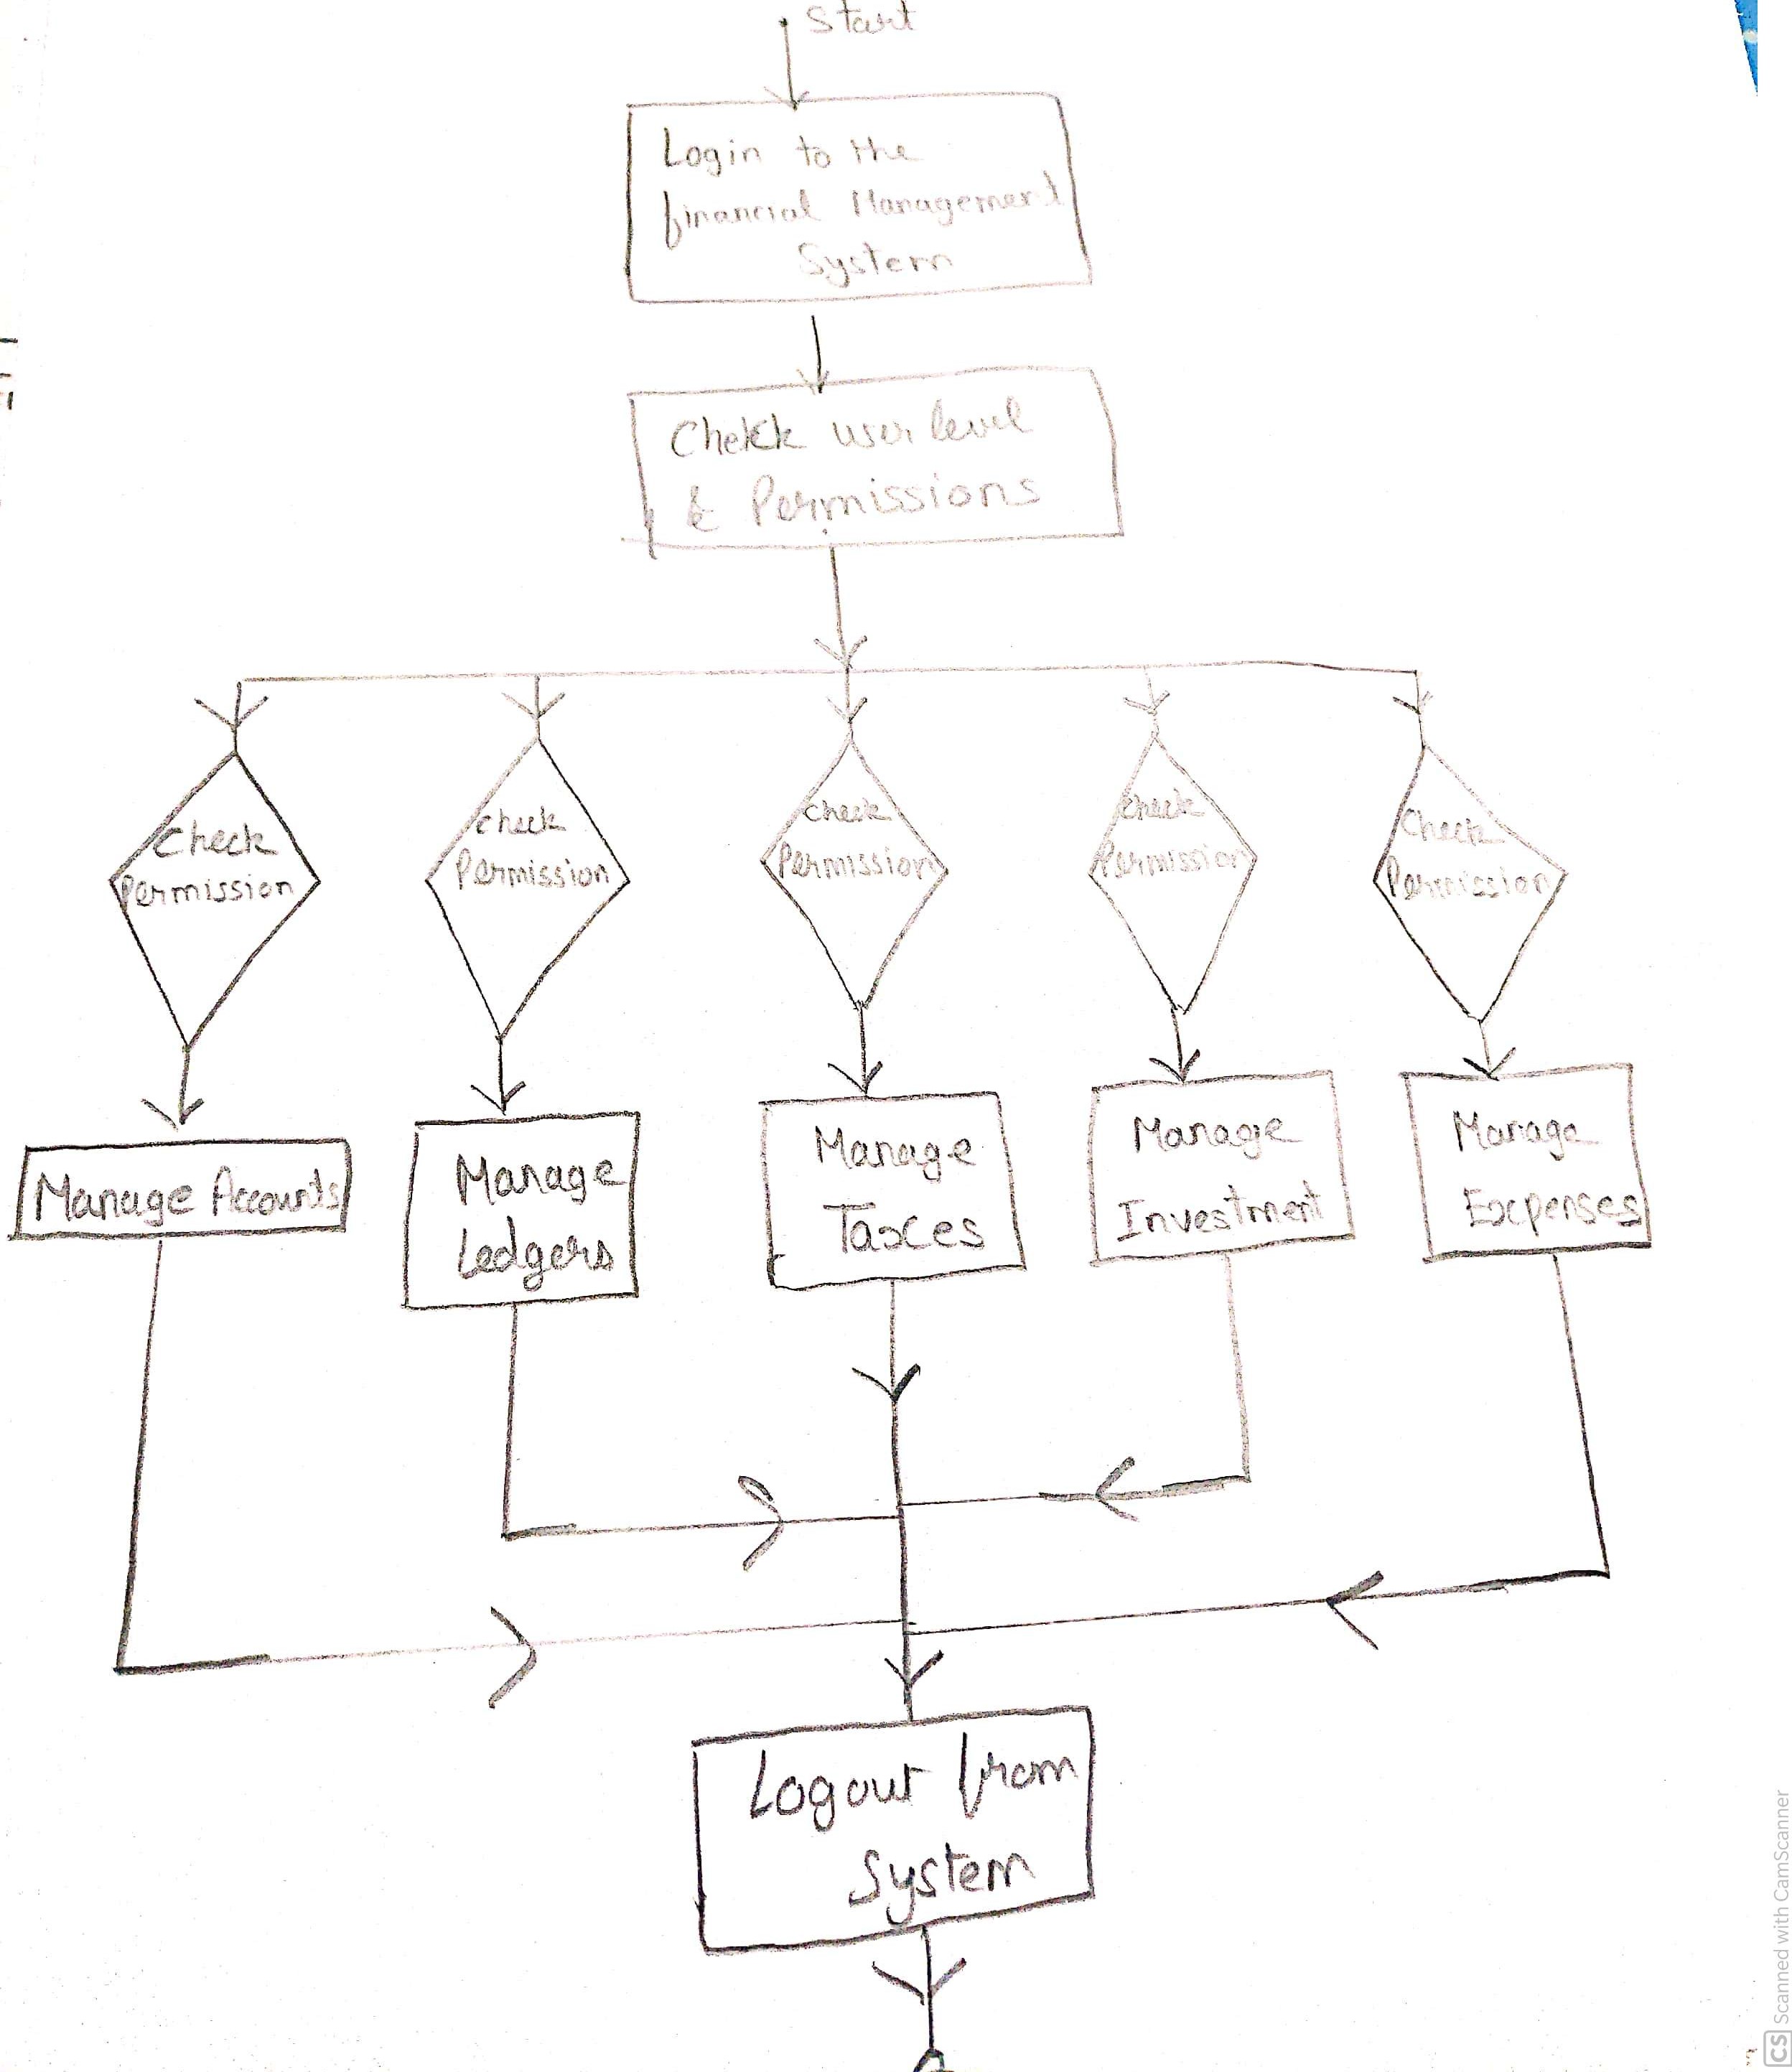 Start
Login to the
financial Management
System
Chekk user level
& Permissions
Check
Permission
Check
Permission
Check
Permission
Check
Permission
Check
Permission
Manage Accounts
Manage
Ledgers
Manage
Taxes
Manage
Investment
Manage
Expenses
Logout from
System
CS Scanned with CamScanner